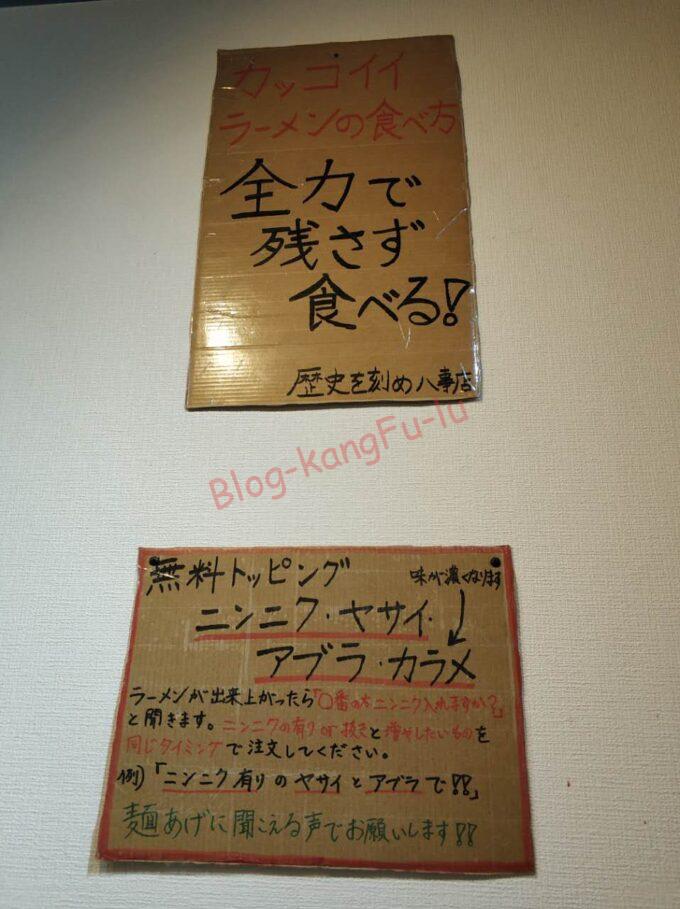 カッコイイ
ラーメンの食べ方
全力で
残さず
食べる!
歴史を刻め八事店
Blog-kangFu-lu
無料トッピング
味が濃くなります
ニンニク・ヤサイ・
アブラ・カラメ
ラーメンが出来上がったら「〇番の方ニンニク入れますか?」
と聞きます。ニンニクの有り or 抜きと増やしたいものを
同じタイミングで注文してください。
例)「ニンニク有りのヤサイとアブラで!!」
麺あげに聞こえる声でお願いします!!